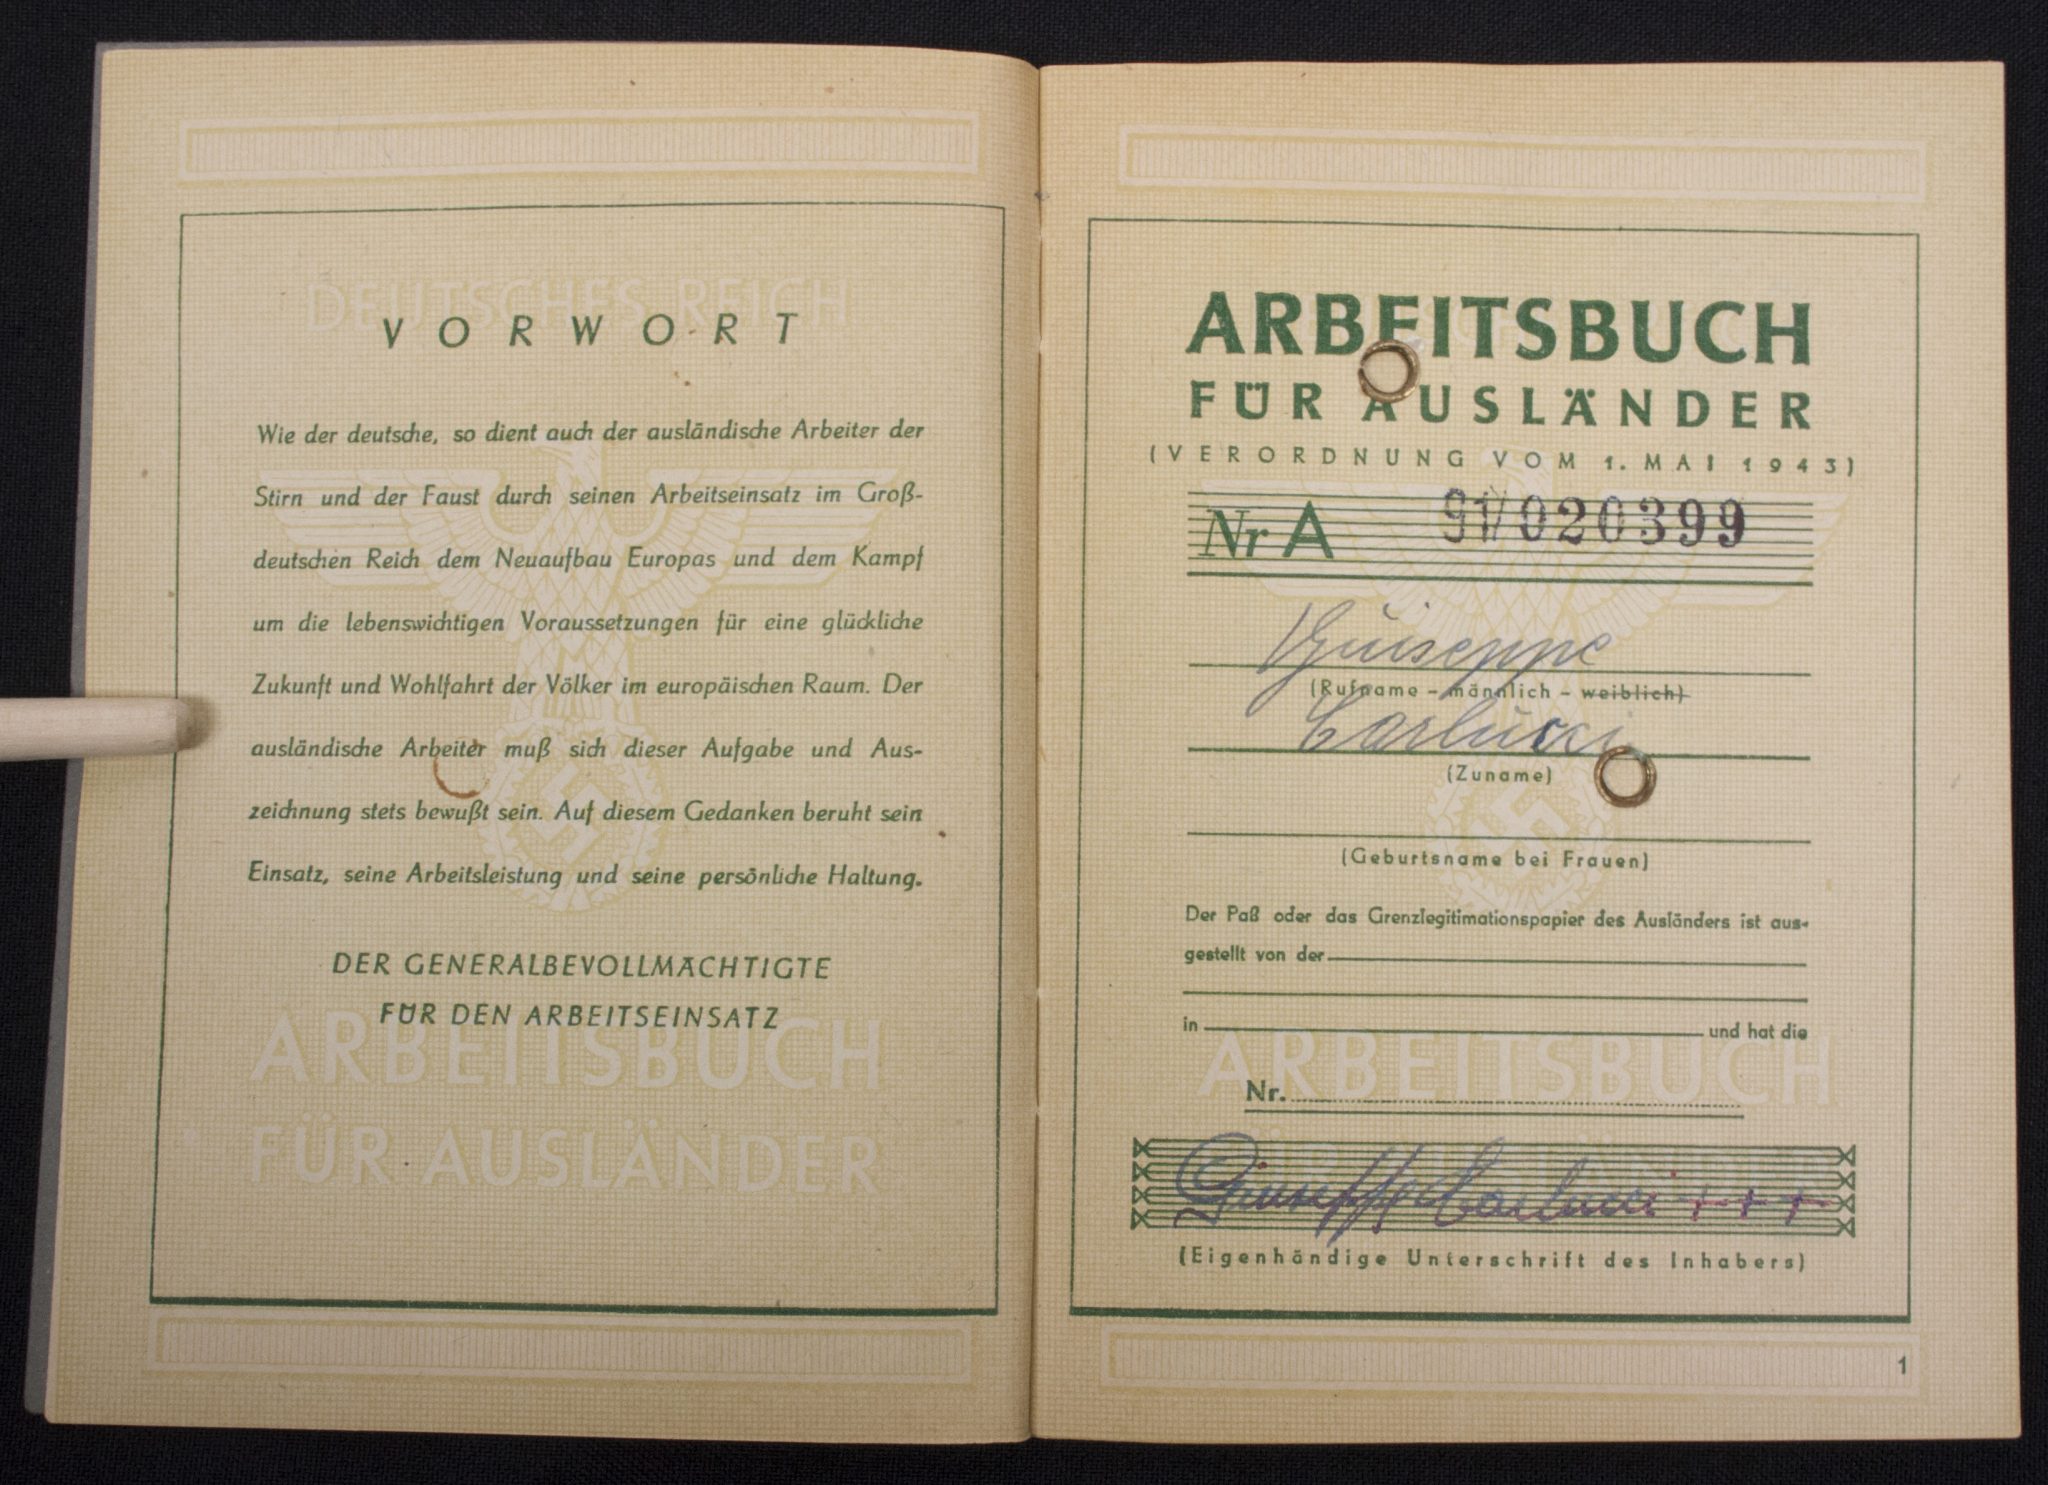 DEUTSCHES REICH
VORWORT
Wie der deutsche, so dient auch der ausländische Arbeiter der
Stirn und der Faust durch seinen Arbeitseinsatz im Groß-
deutschen Reich dem Neuaufbau Europas und dem Kampf
um die lebenswichtigen Voraussetzungen für eine glückliche
Zukunft und Wohlfahrt der Völker im europäischen Raum. Der
ausländische Arbeiter muß sich dieser Aufgabe und Aus-
zeichnung stets bewußt sein. Auf diesem Gedanken beruht sein
Einsatz, seine Arbeitsleistung und seine persönliche Haltung.
DER GENERALBEVOLLMÄCHTIGTE
FÜR DEN ARBEITSEINSATZ
ARBEITSBUCH
FÜR AUSLÄNDER
ARBEITSBUCH
FÜR AUSLÄNDER
(VERORDNUNG VOM 1. MAI 1943)
Nr A 91/020399
Guiseppe
(Rufname – männlich – weiblich)
Carlucci
(Zuname)
(Geburtsname bei Frauen)
Der Paß oder das Grenzlegitimationspapier des Ausländers ist aus-
gestellt von der
in und hat die
ARBEITSBUCH
Nr.
FÜR AUSLÄNDER
Giuseppe Carlucci +++
(Eigenhändige Unterschrift des Inhabers)
1